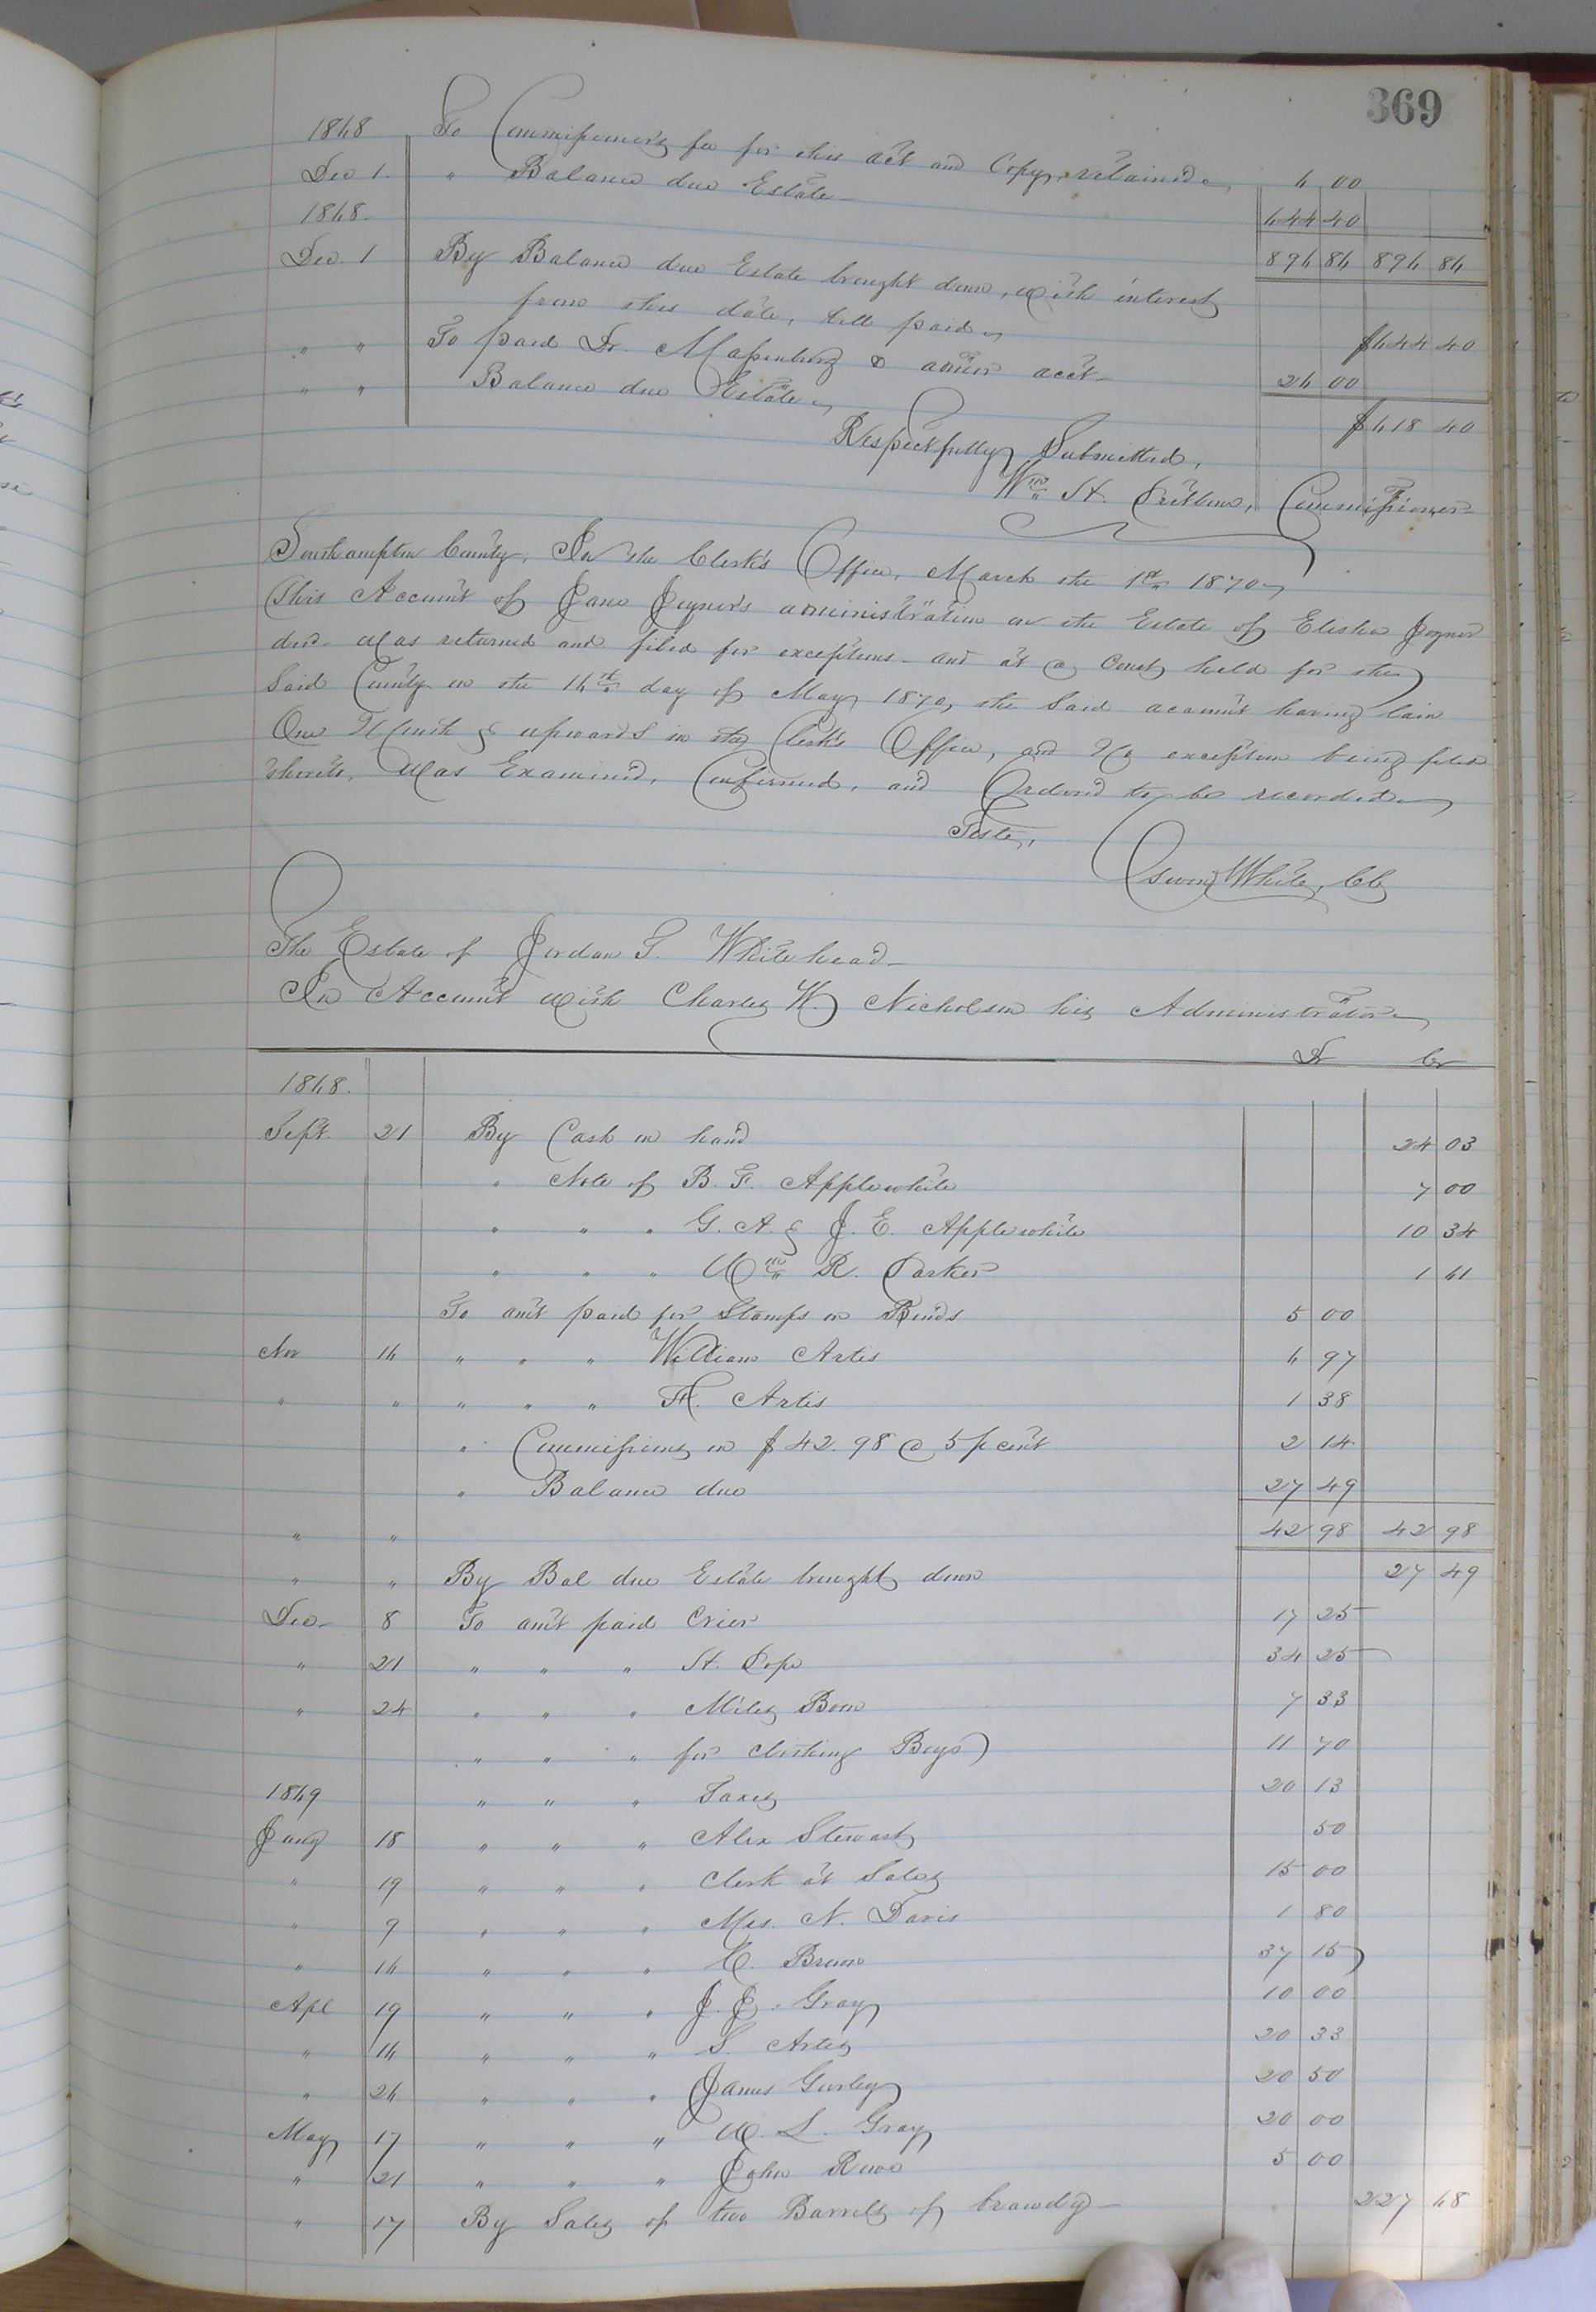 369
1868 To Commissioner's fee for this act and Copy, retained 6 00
Dec 1. " Balance due Estate 644 40
1868. 896 86 896 86
Dec. 1 By Balance due Estate brought down, with interest
from this date, till paid $644 40
" " To paid Dr. Massenburg & amor acct 26 00
" " Balance due Estate $618 40
Respectfully Submitted,
Wm H. Pretlow, Commissioner
Southampton County, In the Clerk's Office, March the 1st 1870
This Account of Jane Joyner's administration on the Estate of Elisha Joyner
decd. Was returned and filed for exceptions and at a Court held for the
Said County on the 16th day of May 1870, the Said account having lain
One Month & upwards in the Clerk's Office, and No exception being filed
thereto, Was Examined, Confirmed, and Ordered to be recorded
Teste,
White, CC
The Estate of Jordan T. Whitehead
In Account with Charles W. Nicholson his Administrator
Dr Cr
1868.
Sept. 21 By Cash on hand 24 03
" Note of B. F. Applewhite 7 00
" " " G. A. & J. E. Applewhite 10 34
" " " Wm R. Parker 1 61
To amt paid for Stamps on Bonds 5 00
Nov 16 " " " William Artis 6 97
" " " " " H. Artis 1 38
" Commissions on $42.98 @ 5 pcent 2 14
" Balance due 27 49
" " 42 98 42 98
" " By Bal due Estate brought down 27 49
Dec 8 To amt paid Crier 17 25
" 21 " " " H. Pope 34 25
" 24 " " " Miles Boon 7 33
" " " for clothing Boys 11 70
1869 " " " Taxes 20 13
Jany 18 " " " Alex Stewart 50
" 19 " " " Clerk at Sales 15 00
" 9 " " " Mrs. N. Davis 1 80
" 16 " " " Brown 37 15
Apl 19 " " " J. J. Gray 10 00
" 16 " " " S. Artis 20 33
" 26 " " " James Gurley 20 50
May 17 " " " W. L. Gray 20 00
" 21 " " " John 5 00
" 17 By Sales of two Barrels of brandy 227 68